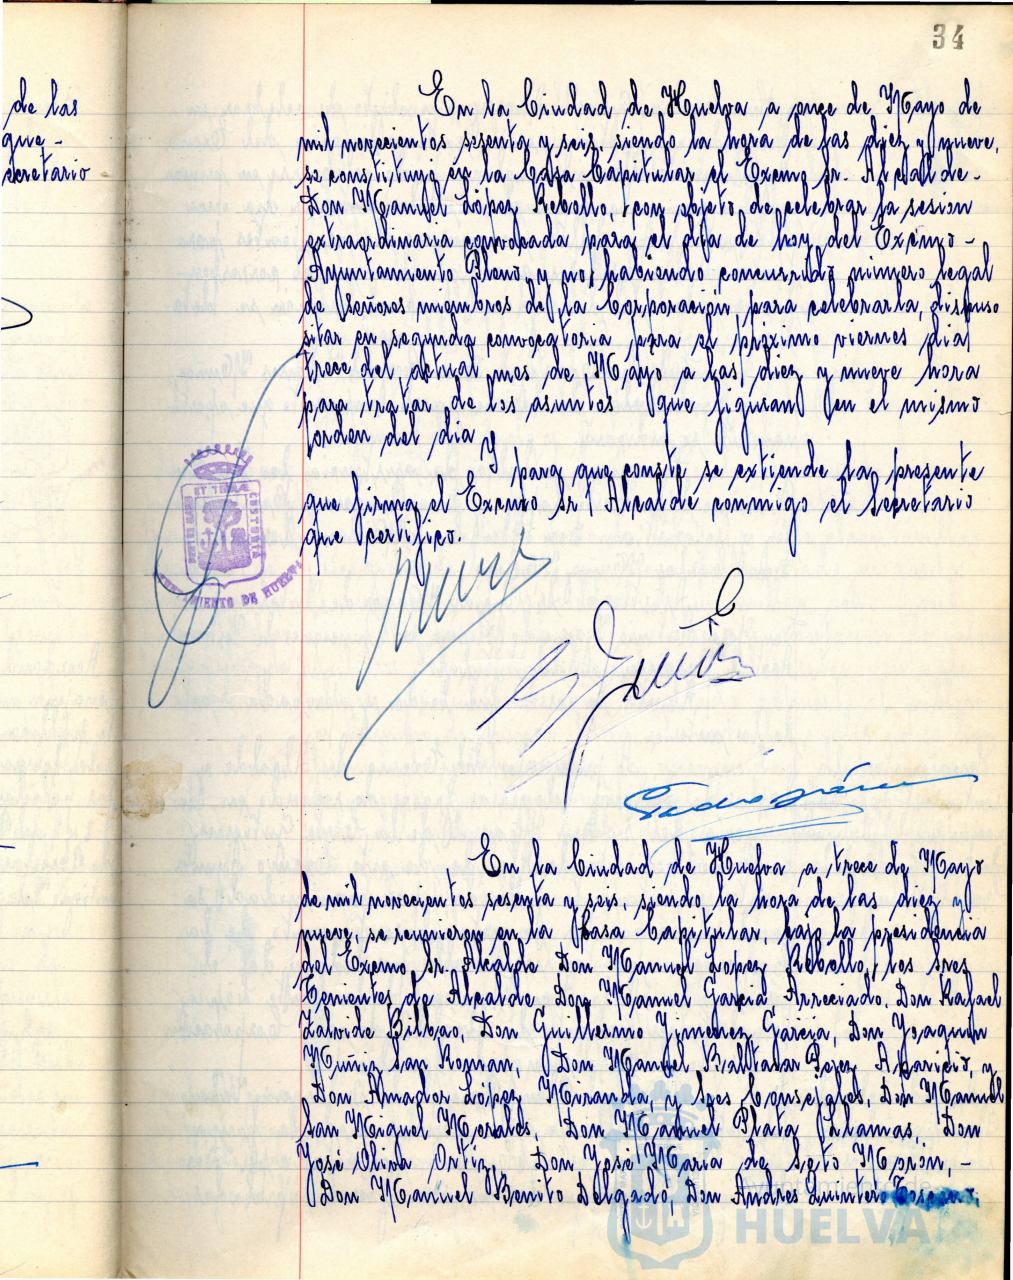 34
de las
que -
cretario
En la Ciudad de Huelva a once de Mayo de
mil novecientos sesenta y seis, siendo la hora de las diez y nueve,
se constituyó en la Casa Capitular el Excmo Sr. Alcalde -
Don Manuel López Rebollo, con objeto de celebrar la sesion
extraordinaria convocada para el dia de hoy del Excmo -
Ayuntamiento Pleno y no habiendo concurrido número legal
de señores miembros de la Corporación para celebrarla, dispuso
sitar en segunda convocatoria para el próximo viernes dia
trece del actual mes de Mayo a las diez y nueve hora
para tratar de los asuntos que figuran en el mismo
orden del dia
Y para que conste se extiende la presente
que firma el Excmo Sr. Alcalde conmigo el Secretario
que certifico.
En la Ciudad de Huelva a trece de Mayo
de mil novecientos sesenta y seis, siendo la hora de las diez y
nueve, se reunieron en la Casa Capitular, bajo la presidencia
del Excmo. Sr. Alcalde Don Manuel Lopez Rebollo, los Sres
Tenientes de Alcalde Don Manuel Garcia Arreciado, Don Rafael
Zalvide Bilbao, Don Guillermo Jimenez Garcia, Don Joaquin
Muñiz San Roman, Don Manuel Baltasar Perez Aparicio, y
Don Amador López Miranda, Sres Concejales, Don Manuel
San Miguel Morales, Don Manuel Plata Llamas, Don
José Oliva Ortiz, Don José Maria de Soto Morón, -
Don Manuel Benito Delgado, Don Andres Quintero Toscano,
Ayuntamiento de
HUELVA